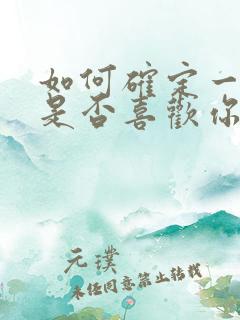 如何確定一
是否喜歡你
元璞
未经同意禁止转载